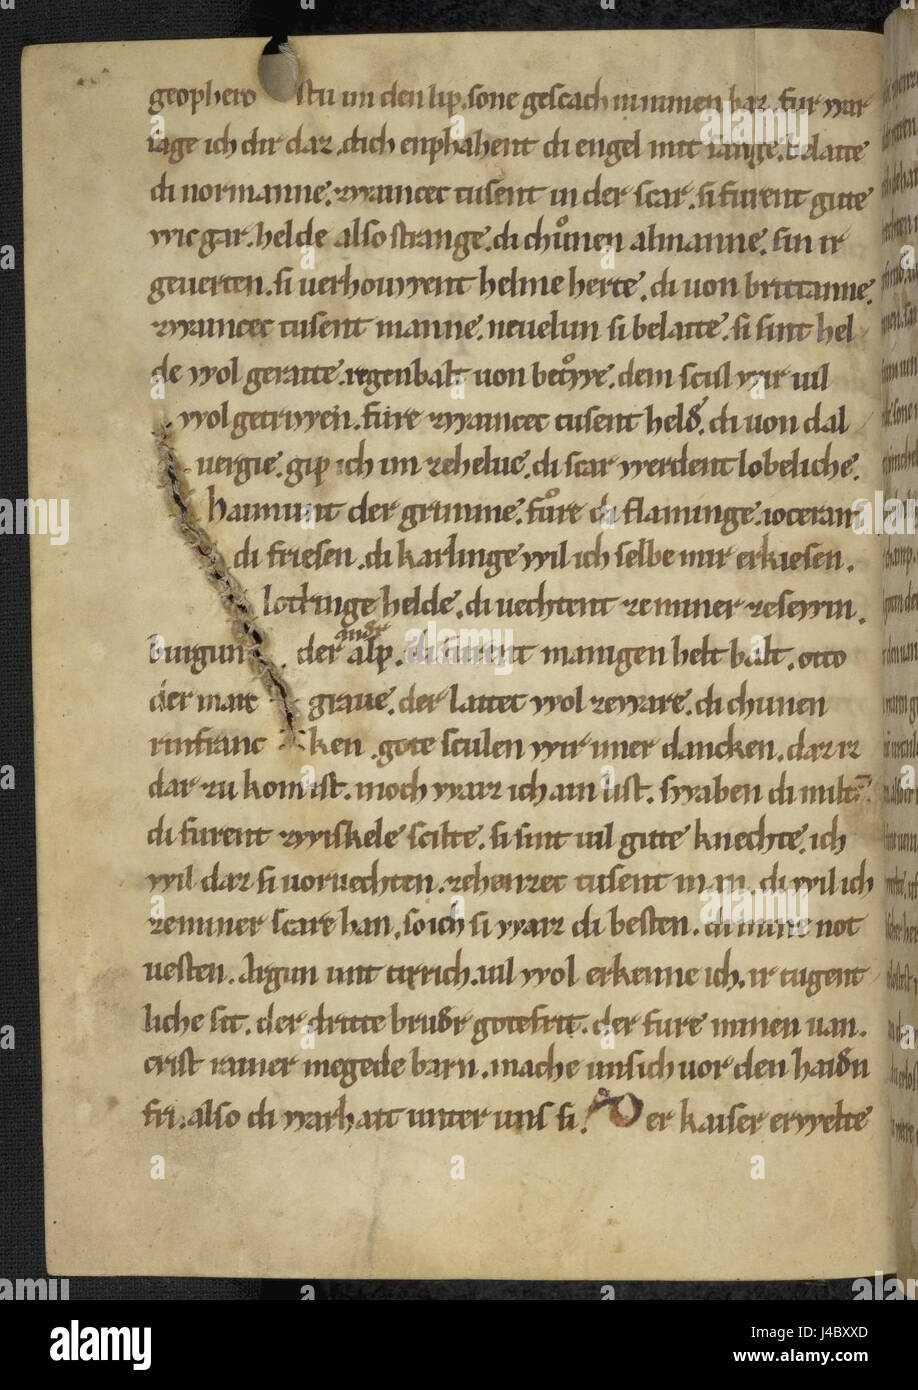 geophero stu im den lip. sone gescach nimmen baz. fur war
sage ich dir daz. dich enphahent di engel mit sange.
di normanne. zwaincec tusent in der scar. si furent gute
wicgar. helde also strange. di chůnen almanne. sin ir
geuerten. si uerhowwent helme herte. di uon brittanne.
zwaincec tusent manne. neuelun si belaitte. si sint hel
de wol geraitte. regenbalt uon dem scul wir uil
wol getruwen. fure zwaincec tusent held. di uon dal
uergie. gip ich im zehelue. di scar werdent lobeliche.
haimunt der grimme. fůre di flaminge. ioceran
di friesen. di karlinge wil ich selbe mir erkiesen.
lothringe helde. di uechtent zeminer zesewin.
burgun der andr alp. di furent manigen helt balt. otto
der marc graue. der laitet wol zeware. di chunen
rinfranc ken. gote sculen wir imer dancken. daz iz
dar zu komist. noch waiz ich ain list. swaben di milt
di furent zwiskele scilte. si sint uil gute knechte. ich
wil daz si uoruechten. zehenzec tusent man. di wil ich
zeminer scare han. so ich si waiz di besten. di mine not
uesten. Argun unt tirrich. uil wol erkenne ich. ir tugent
liche sit. der dritte brudr gotefrit. der fure minen uan.
crist rainer megede barn. mache unsich uor den haidn
fri. also di warhait unter uns si. Der kaiser erwelte
alamy
Image ID: J4BYXD
www.alamy.com